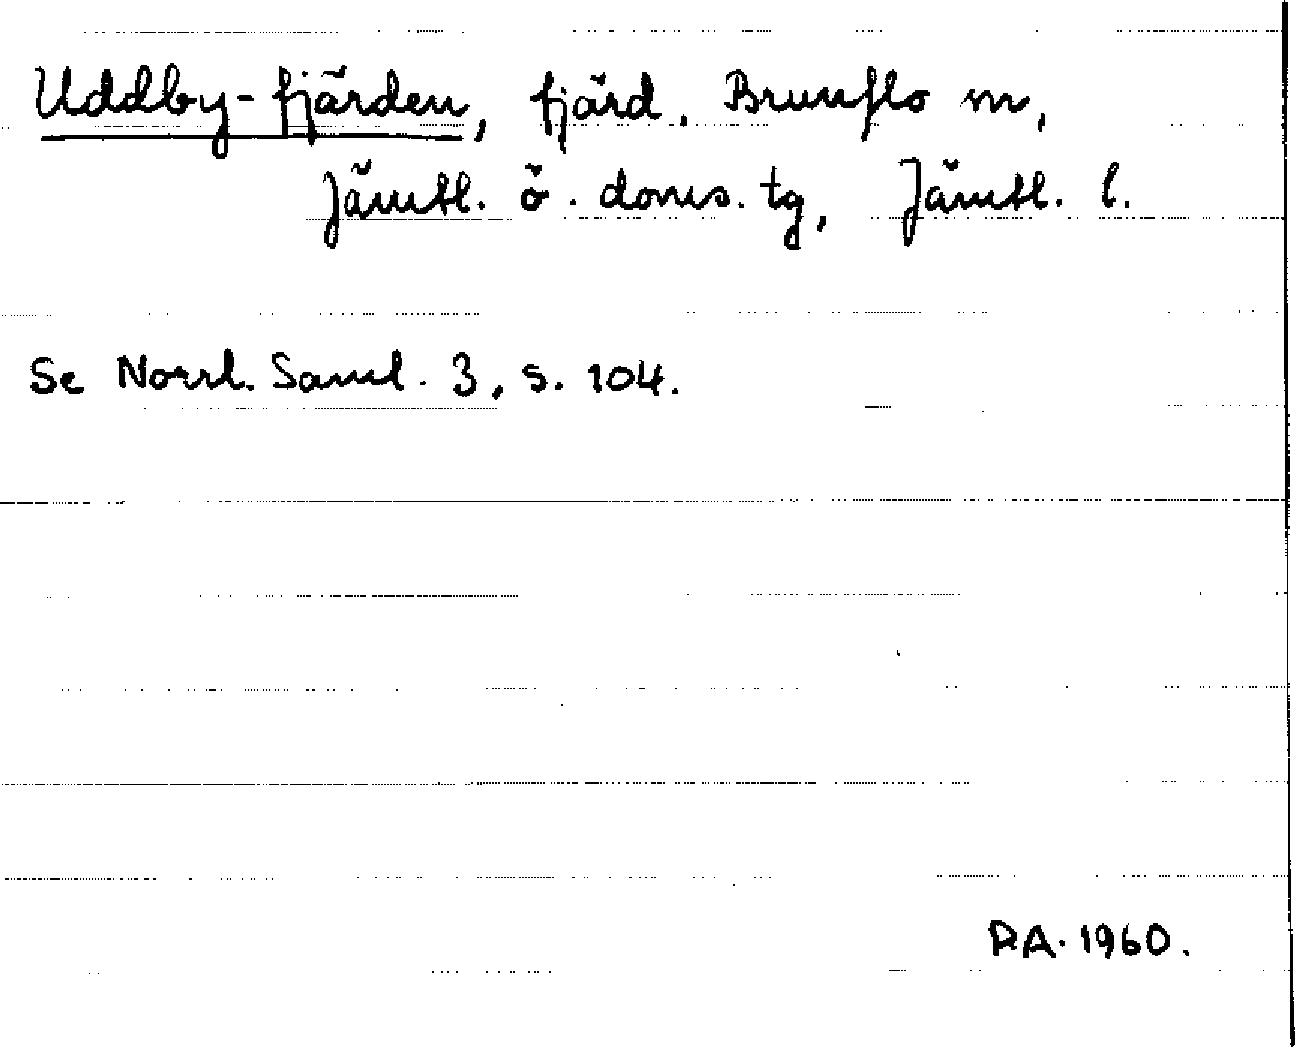 Uddby-fjärden, fjärd. Brunflo sn,
Jämtl. ö. doms. tg, Jämtl. l.
Se Norrl. Saml. 3, s. 104.
RA. 1960.